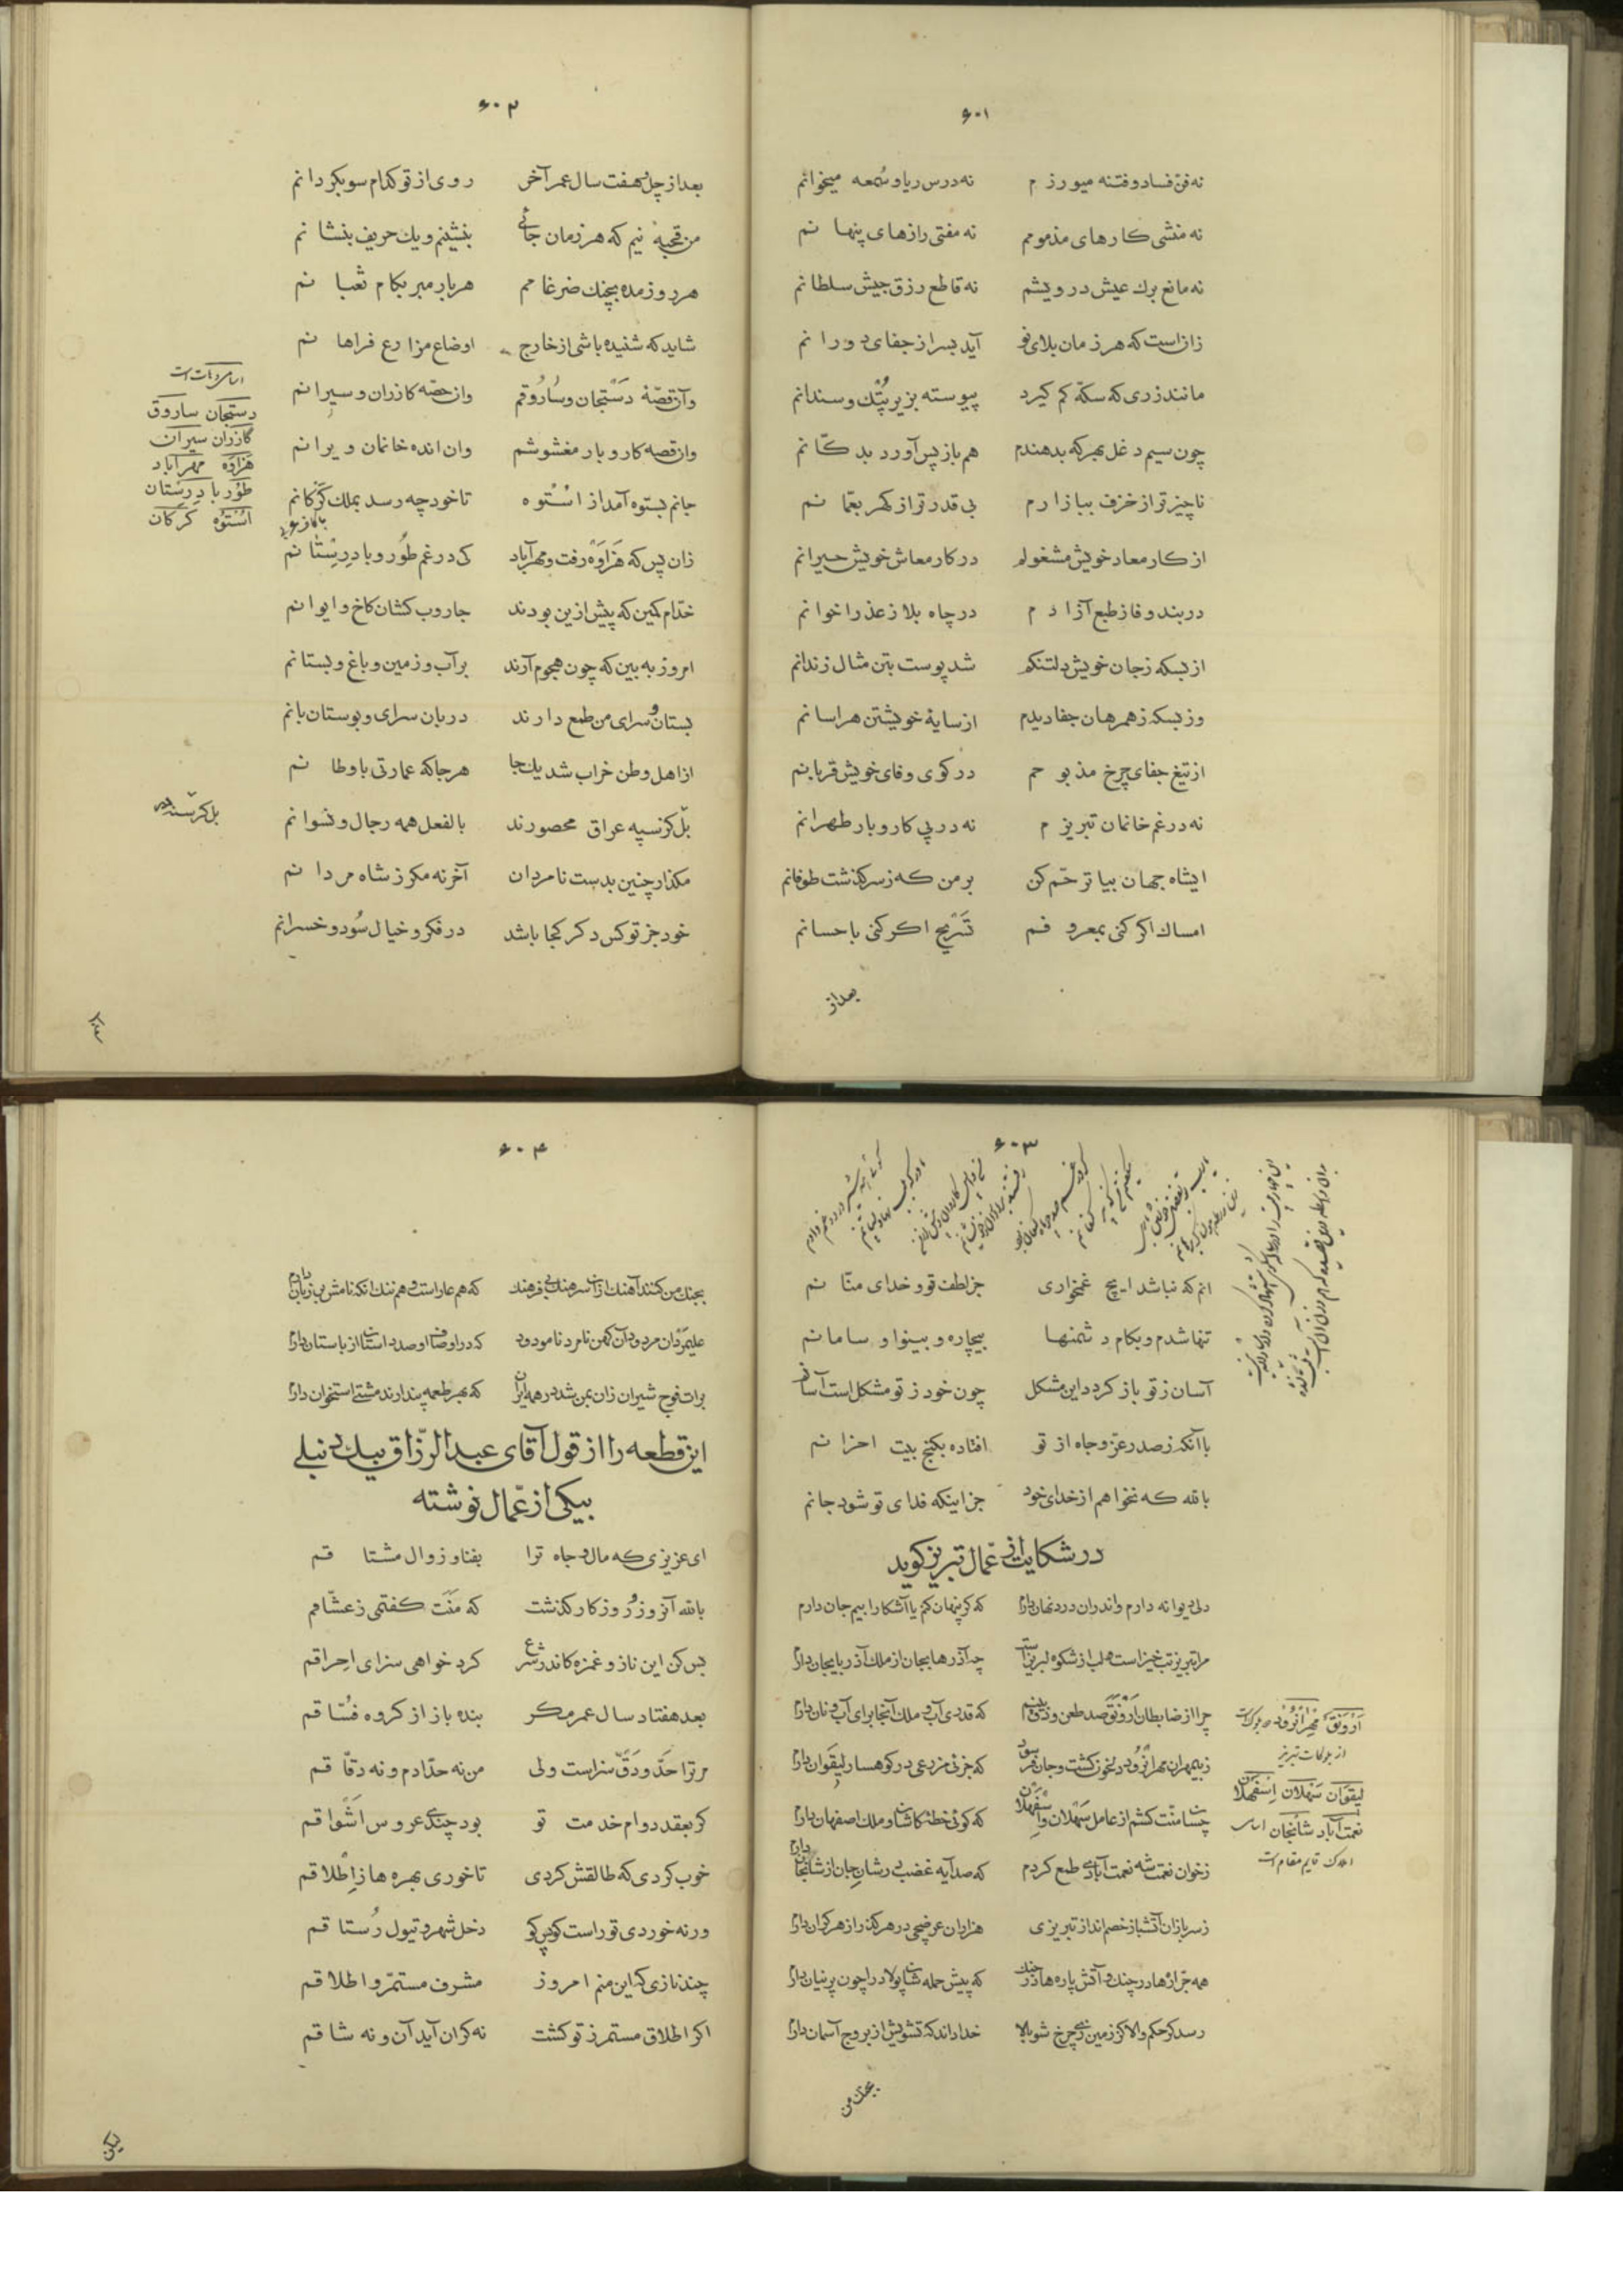 ۶۰۱
نه فن فساد و فتنه میورزم نه درس ریا و سُمعه میخوانم
نه منشی کارهای مذمومم نه مفتی رازهای پنهانم
نه مانع برك عیش درویشم نه قاطع رزق جیش سلطانم
زان است که هر زمان بلای نو آید بسر از جفای دورانم
مانند زری که سکّه کم کیرد پیوسته بزیر پُتك و سندانم
چون سیم دغل بهر که بدهندم هم باز پس آورد بدکّانم
ناچیزتر از خزف ببازارم بی قدرتر از کهر بعمّانم
از کار معاد خویش مشغولم در کار معاش خویش حیرانم
در بند وفا ز طبع آزادم در چاه بلا ز عذر اخوانم
از بسکه ز جان خویش دلتنکم شد پوست بتن مثال زندانم
وز بسکه ز همرهان جفا دیدم از سایهٔ خویشتن هراسانم
از تیغ جفای چرخ مذبوحم در کوی وفای خویش قربانم
نه در غم خانمان تبریزم نه در پی کار و بار طهرانم
ایشاه جهان بیا ترحّم کن بر من که ز سر کذشت طوفانم
امساك اکر کنی بمعروفم تَسْریح اکر کنی باحسانم
بعد از
۶۰۲
بعد از چل و هفت سال عمر آخر روی از تو کدام سو بکردانم
من قحبه نیم که هر زمان جائی بنشینم و یك حریف بنشانم
هر روز مده بچنك ضرغامم هر بار مبر بکام ثعبانم
شاید که شنیده باشی از خارج اوضاع مزارع فراهانم
وآن قصّهٔ دَستجان و سارُوقم وان حصّه کازران و سیرانم
وان قصه کار و بار مغشوشم وان انده خانمان ویرانم
جانم بستوه آمد از اسْتُوه تا خود چه رسد بملك کَرَکانم
زان پس که هَزاوَه رفت و مهرآباد کی در غم طُور و بادِرِسْتانم
خدّام کمین که پیش ازین بودند جاروب کشان کاخ و ایوانم
امروز به بین که چون هجوم آرند بر آب و زمین و باغ و بستانم
بستان و سرای من طمع دارند دربان سرای و بوستان بانم
از اهل وطن خراب شد یك جا هر جا که عمارتی باوطانم
بل کرسنه عراق محصورند بالفعل همه رجال و نسوانم
مکذار چنین بدست نامردان آخر نه مکر ز شاه مردانم
خود جز تو کس دکر کجا باشد در فکر و خیال سُود و خسرانم
دستجان ساروق
کازران سیران
هَزاوَه مهرآباد
طُور بادِرِستان
اسْتُوه کَرَکان
۶۰۳
انم که نباشد ایچ غمخواری جز لطف تو و خدای منّانم
تنها شدم و بکام دشمنها بیچاره و بینوا و سامانم
آسان ز تو باز کردد این مشکل چون خود ز تو مشکل است آسانم
با آنکه ز صدر عزّ و جاه از تو افتاده بکنج بیت احزانم
بالله که نخواهم از خدای خود جز اینکه فدای تو شود جانم
در شکایت از عمّال تبریز کوید
دلی دیوانه دارم واندران درد نهان دارم که کر پنهان کنم یا آشکارا بیم جان دارم
مرا تبریز تب خیز است و لب از شکوه لبریز است چه آذرها بجان از ملك آذربایجان دارم
چرا از ضابطان اَرْوَنَق صد طعن و دق بینم که قدری آب و ملك آنجا برای آب و نان دارم
که جزئی مزرعی در کوهسار لیقَوان دارم
چسا منّت کشم از عامل سَهْلان و اسفَهلان که کوئی خطهٔ کاشان و ملك اصفهان دارم
ز خوان نعمت شه نعمت آبادی طمع کردم که صد آیه غضب در شان جان از شانجان دارم
هزاران عرضچی در هر کذر از هر کران دارم
خدا داند که تشویش از بروج آسمان دارم
لیقَوان سَهْلان اسفَهلان
نعمت آباد شانجان
بجنك من
۶۰۴
بجنك من کند آهنك ازان سرهنك بی فرهنك که هم عار است و هم ننك انکه نامش بر زبان دارم
علیمَردان مردود آن کهن نامرد نامردود که در اوصاف او صد داستان از باستان دارم
برات فوج شیران زان بمن شد در همه ایران که بهر طعمه پندارند مشتی استخوان دارم
این قطعه را از قول آقای عبدالرزّاق بیك دنبلی
بیکی از عمّال نوشته
ای عزیزی که مال و جاه ترا بفنا و زوال مشتاقم
بالله آنروز و روزکار کذشت که منَت کفتمی ز عشّاقم
بس کن این ناز و غمزه کاندر شرع کرد خواهی سزای احراقم
بعد هفتاد سال عمر مکر بنده باز از کروه فُسّاقم
مر ترا حَدّ و دَقّ سزاست ولی من نه حدّادم و نه دقّاقم
کر بعقد دوام خدمت تو بود چندی عروس اشواقم
خوب کردی که طالقش کردی تا خوری بهره ها ز اِطْلاقم
ورنه خوردی تو راست کو پس کو دخل شهر و تیول رُستاقم
چند نازی که این منم امروز مشرف مستمرّ و اطلاقم
اکر اطلاق مستمر ز تو کشت نه کران آید آن و نه شاقم
لیکن